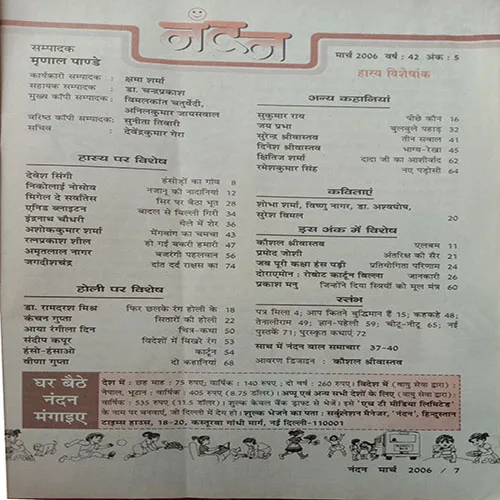 नंदन
मार्च 2006 वर्ष : 42 अंक : 5
हास्य विशेषांक
सम्पादक
मृणाल पाण्डे
कार्यकारी सम्पादक : क्षमा शर्मा
सहायक सम्पादक : डा. चन्द्रप्रकाश
मुख्य कॉपी सम्पादक : विमलकांत चतुर्वेदी,
अनिलकुमार जायसवाल
वरिष्ठ कॉपी सम्पादक: सुनीता तिवारी
सचिव : देवेंद्रकुमार गेरा
हास्य पर विशेष
देवेश सिंगी हंसोड़ों का गांव 8
निकोलाई नोसोव नजानू की नादानियां 12
मिगेल दे सर्वांतेस सिर पर बैठा भूत 28
एनिड ब्लाइटन बादल से बिल्ली गिरी 34
इंद्रनाथ चौधरी थैले में शेर 36
अशोककुमार शर्मा मेंगवांग का चमचा 43
रत्नप्रकाश शील हो गई बकरी हमारी 47
अमृतलाल नागर बजरंगी पहलवान 56
जगदीशचंद्र दांत दर्द राक्षस का 74
होली पर विशेष
डा. रामदरश मिश्र फिर छलके रंग होली के 18
कंचन गुप्ता सितारों की होली 22
आया रंगीला दिन चित्र-कथा 50
संदीप कपूर विदेशों में बिखरे रंग 53
हंसो-हंसाओ कार्टून 54
वीणा गुप्ता दो कहानियां 68
अन्य कहानियां
सुकुमार राय पीछे कौन 16
जय प्रभा बुलबुले पहाड़ 32
सुरेन्द्र श्रीवास्तव तीन सवाल 41
दिनेश श्रीवास्तव भाग्य-रेखा 45
क्षितिज शर्मा दादा जी का आशीर्वाद 62
रमेशकुमार सिंह नए पड़ोसी 64
कविताएं
शोभा शर्मा, विष्णु नागर, डा. अश्वघोष,
सुरेश विमल 20
इस अंक में विशेष
कौशल श्रीवास्तव एलबम 11
प्रमोद जोशी अंतरिक्ष की सैर 21
जब पूरी कक्षा हंस पड़ी प्रतियोगिता परिणाम 24
दोराएमोन : रोबोट कार्टून बिल्ला जानकारी 26
प्रकाश मनु जिन्होंने दिया स्त्रियों को मूल मंत्र 60
स्तंभ
पत्र मिला 4; आप कितने बुद्धिमान हैं 15; कहकहे 48;
तेनालीराम 49; ज्ञान-पहेली 59; चीटू-नीटू 65; नई
पुस्तकें 71; पुरस्कृत कथाएं 72
साथ में नंदन बाल समाचार 37-40
आवरण डिजाइन : कौशल श्रीवास्तव
घर बैठे
नंदन
मंगाइए
देश में : छह माह : 75 रुपए; वार्षिक : 140 रुपए ; दो वर्ष : 260 रुपए। विदेश में (वायु सेवा द्वारा) :
नेपाल, भूटान : वार्षिक : 405 रुपए (8.75 डॉलर)। अन्य सभी देशों के लिए (वायु सेवा द्वारा) :
वार्षिक : 535 रुपए (11.5 डॉलर)। शुल्क केवल बैंक ड्राफ्ट से भेजें। इसे 'एच टी मीडिया लिमिटेड'
के नाम पर बनवाएं, जो दिल्ली में देय हो। शुल्क भेजने का पता : सर्कुलेशन मैनेजर, 'नंदन', हिन्दुस्तान
टाइम्स हाउस, 18-20, कस्तूरबा गांधी मार्ग, नई दिल्ली-110001
नंदन मार्च 2006 / 7